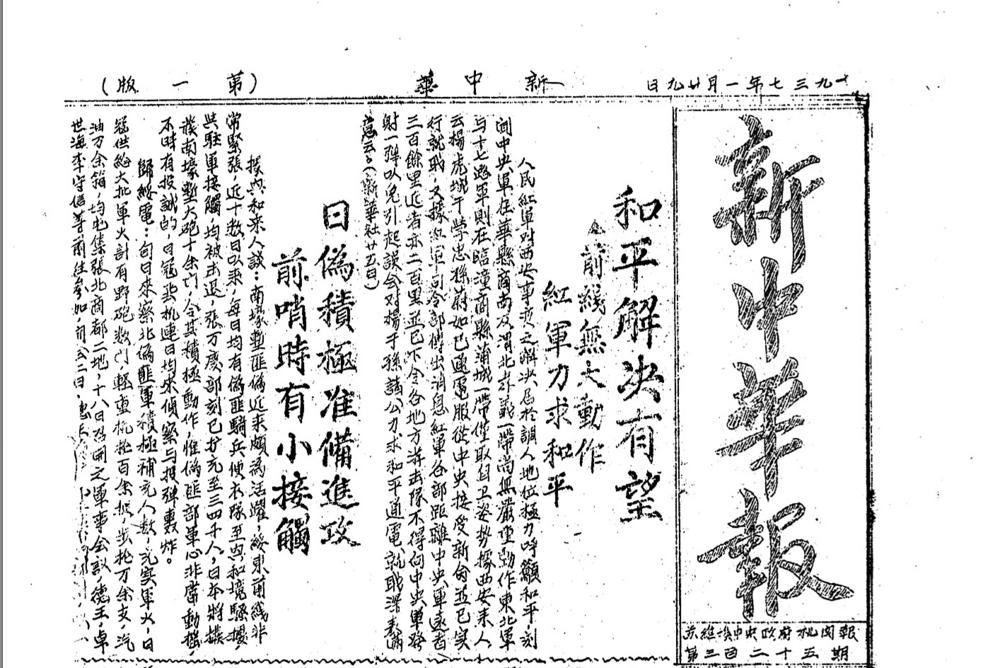 一九三七年一月廿九日
新中華
(第一版)
新中華報
苏維埃中央政府机関報
第三百二十五期
和平解决有望
前綫無大動作
紅軍力求和平
人民紅軍对西安事变之解决居於調人地位極力呼籲和平,刻
聞中央軍在華縣商南及渭北孝義一帶尚無嚴重動作東北軍
与十七路軍則在臨潼商縣蒲城一帶僅取自卫姿势據西安来人
云楊虎城于學忠孫蔚如已通電服從中央接受新命並已实
行就职,又據紅軍司令部傳出消息紅軍各部距離中央軍遠者
三百餘里近者亦二百里並已令各地方游击隊不得向中央軍
射一弹以免引起誤会对楊于孫諸公力求和平通電就职深表滿
意云云(新華社廿五日)
日偽積極准備進攻
前哨時有小接觸
興和来人談:南壕塹匪偽近来頗為活躍,綏東前綫非
常緊張,近十数日以来,每日均有偽匪騎兵便衣隊至興和境騷擾,
與駐軍接觸均被击退,張万慶部刻已扩充至三四千人,日本將
南壕塹大砲十余门,令其積極動作,惟偽匪部軍心非常動摇,
不時有投誠的,日寇飞机連日均来偵察与投弹轰炸。
歸綏電:旬日来察北偽匪軍積極補充人数,充实軍火,日
寇供给大批軍火計有野砲数门,輕重机枪百余挺,步枪万余支,汽
油万余箱,均屯集張北商都二地,十八日召開之軍事会议,德王,卓
世海李守信等前往参加,